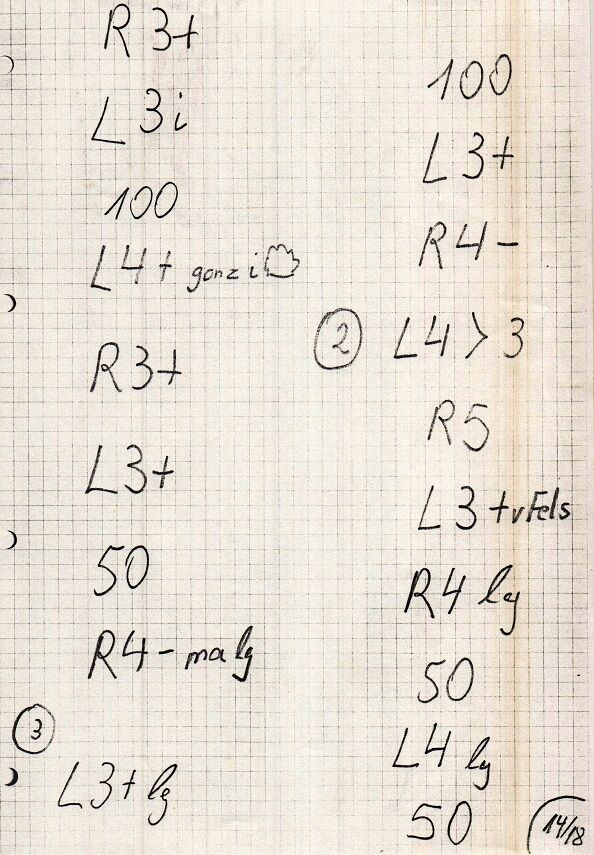 R 3+
L 3 i
100
L4+ ganz i
R3+
L3+
50
R4- ma lg
3
L3+ lg
100
L3+
R4-
2 L4 > 3
R5
L3+ v Fels
R4 lg
50
L4 lg
50
14/18